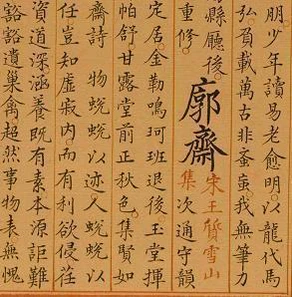 朋。少年讀易老愈明。以龍代馬
弘。負載萬古非蚉䖟。我無筆力
縣廳後。
重修。
廓齋
宋王質雪山
集 次通守韻
定居。金勒鳴珂班退後。玉堂揮
帕舒甘露堂前正秋色。集賢如
齋詩 物蛻蛻以迹人蛻蛻以
任豈知虛寂内。而有利欲侵荏
資道深。涵養既有素本源詎難
豁豁遺巢禽超然事物表無愧